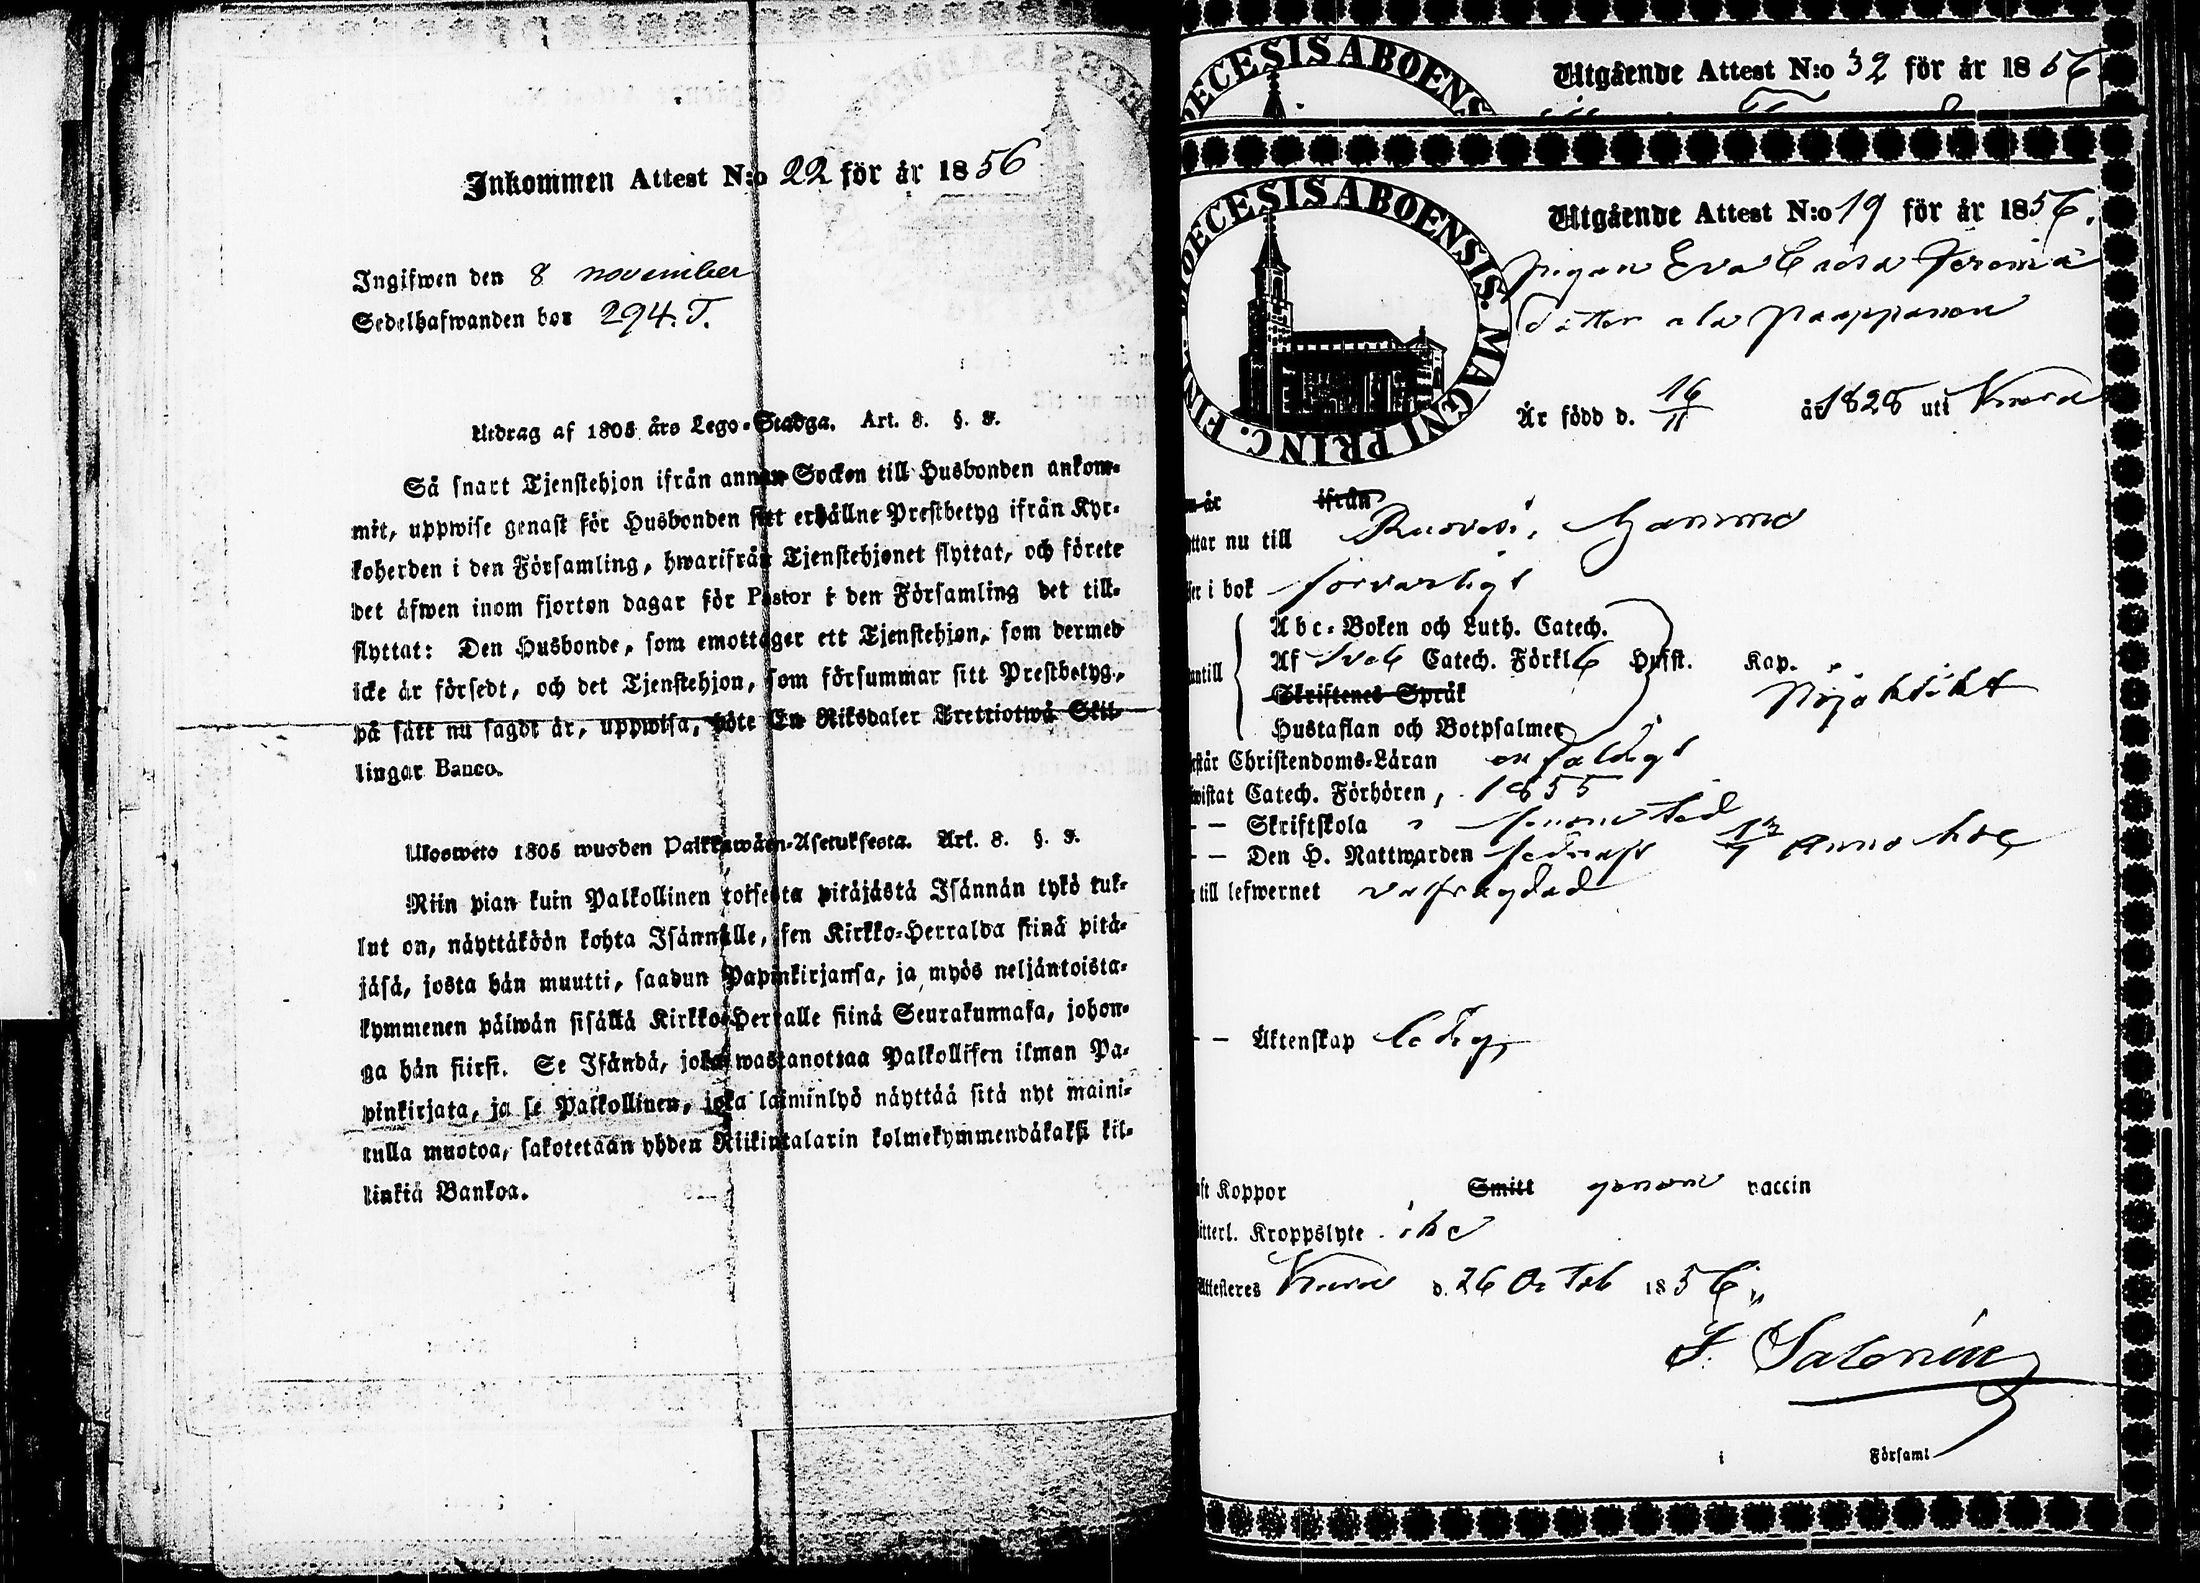 Inkommen Attest N:o 22 för år 1856
Ingifwen den 8 november
Sedelhafwanden bor 294. T.
Utdrag af 1805 års Lego-Stadga. Art. 8. §. 3.
Så snart Tjenstehjon ifrån annan Socken till Husbonden ankom-
mit, uppwise genast för Husbonden sitt erhållne Prestbetyg ifrån Kyr-
koherden i den Församling, hwarifrån Tjenstehjonet flyttat, och förete
det äfwen inom fjorton dagar för Pastor i den Församling det till-
flyttat: Den Husbonde, som emottager ett Tjenstehjon, som dermed
icke är försedt, och det Tjenstehjon, som försummar sitt Prestbetyg,
på sätt nu sagdt är, uppwisa, böte En Riksdaler Trettiotwå Skil-
lingar Banco.
Ulosweto 1805 wuoden Palkkawäen-Asetuksesta. Art. 8. §. 3.
Niin pian kuin Palkollinen toisesta pitäjästä Isännän tykö tul-
lut on, näyttäköön kohta Isännälle, sen Kirkko-Herralda siinä pitä-
jäsä, josta hän muutti, saadun Papinkirjansa, ja myös neljäntoista-
kymmenen päiwän sisällä Kirkko-Herralle siinä Seurakunnasa, johon-
ga hän siirsi. Se Isändä, joka wastanottaa Palkollisen ilman Pa-
pinkirjata, ja se Palkollinen, joka laiminlyö näyttää sitä nyt maini-
tulla muotoa, sakotetaan yhden Riikintalarin kolmekymmendäkaksi kil-
linkiä Bankoa.
DECESIS ABOENS
Utgående Attest N:o 32 för år 1856
DIOECESIS ABOENSIS. MAGNI PRINC. FIN
Utgående Attest N:o 19 för år 1856.
pigan Eva Caisa Jeremiæ
dotter ala Paappanen
Är född d. 16/11 år 1828 uti
m är ifrån
yttar nu till Ruovesi,
ser i bok försvarligt
Abc-Boken och Luth. Catech.
Af Sveb Catech. Förkl Husst. Kap.
antill Skriftenes Språk Nöjaktikt
Hustaflan och Botpsalmer
rstår Christendoms-Läran enfaldigt
wistat Catech. Förhören, 1855
- - Skriftskola
- - Den H. Nattwarden
till lefwernet välfrägdad
- - Äktenskap ledig
ft Koppor Smitt genom vaccin
itterl. Kroppslyte
Attesteres d. 26 Octob 1856
F. Salonén
i Församl